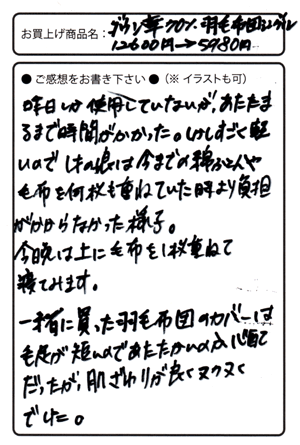 お買上げ商品名: ダウン率70%羽毛布団シングル
12600円→5980円
● ご感想をお書き下さい ●(※ イラストも可)
昨日しか使用していないが、あたたま
るまで時間がかかった。しかしすごく軽
いので 体の負担は今までの綿ふとんや
毛布を何枚も重ねていた時より負担
がかからなかった様子。
今晩は上に毛布を1枚重ねて
寝てみます。
一緒に買った羽毛布団のカバーは
毛足が短いのであたたかいのか心配
だったが、肌ざわりが良くヌクヌク
でした。